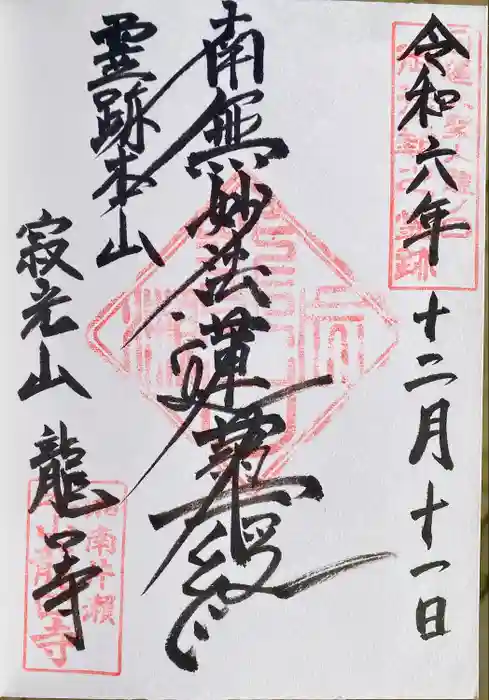 令和六年 十二月十一日
南無妙法蓮華経
霊跡本山
寂光山 龍口寺
湘南片瀬
龍口寺